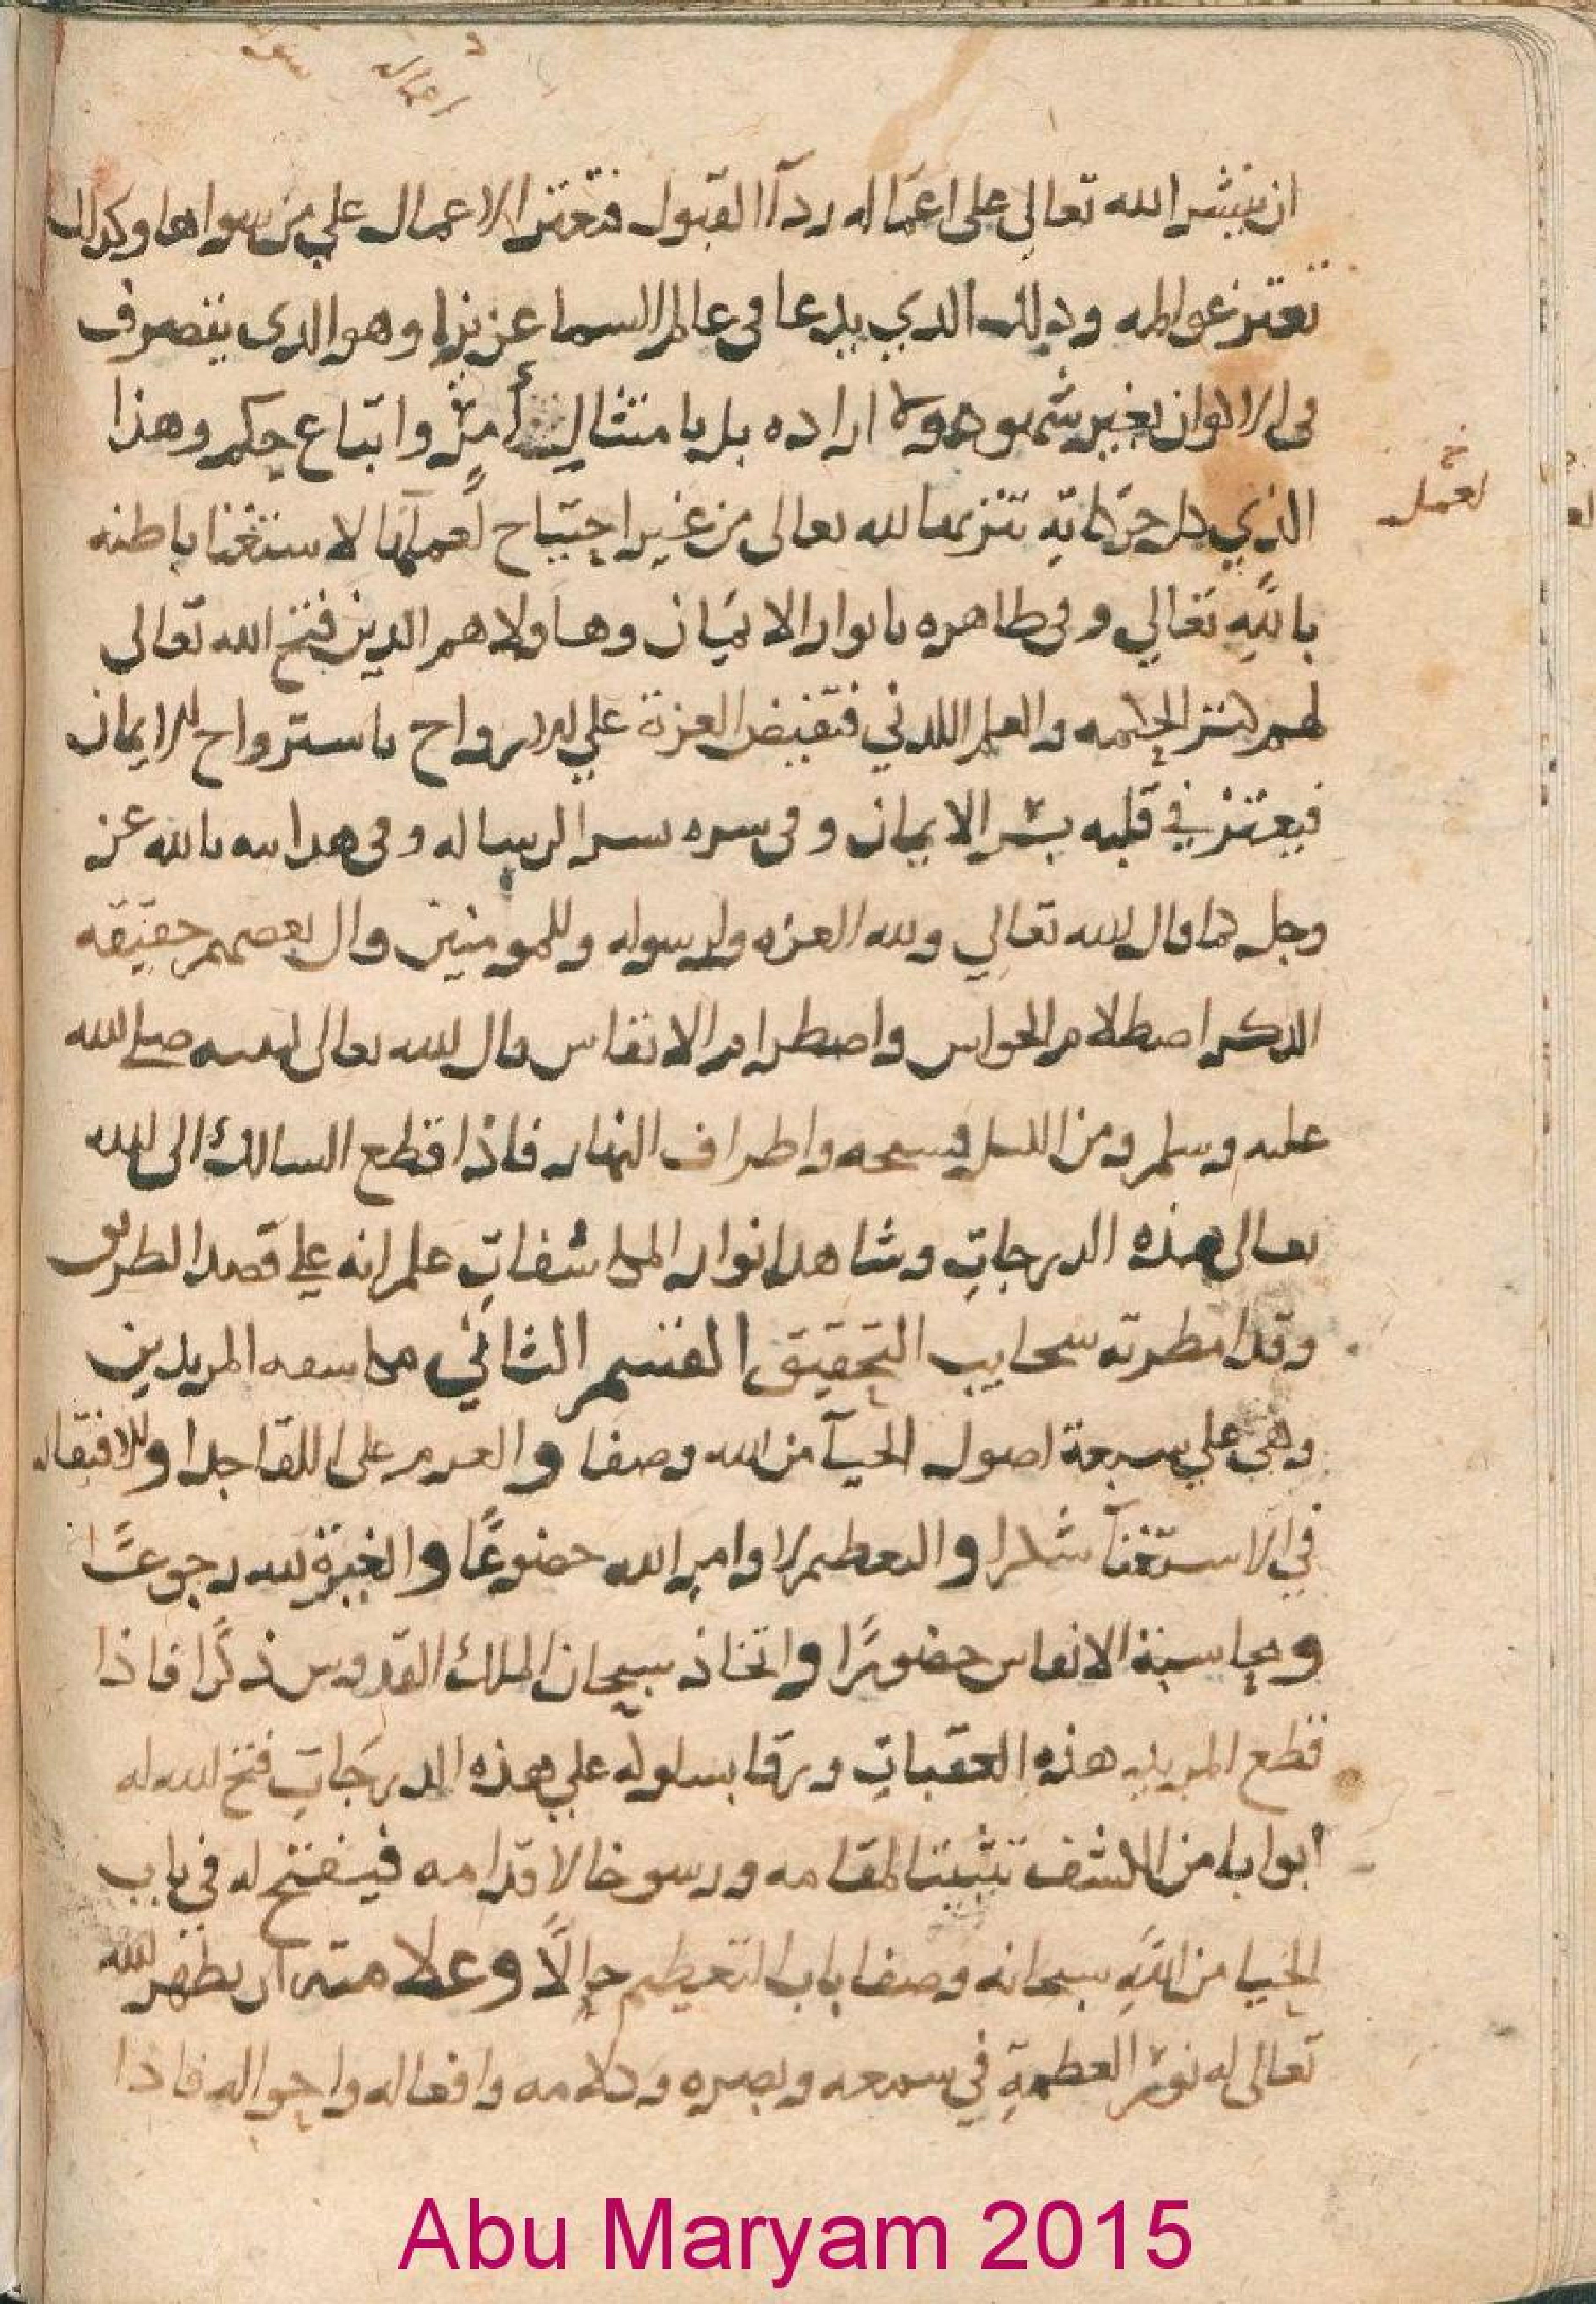 اعماله
ان ينشر الله تعالى على اعماله ردآ القبول فتعتز الاعمال على من سواها وكذلك
تعتز عوالمه وذلك الذي يدعا في عالم السما عزيزا وهو الذي يتصرف
في الاكوان بغير شهوه ولا اراده بل بامتثال أمرٍ واتباع حكم وهذا
الذي كل حركاته تنزيها لله تعالى من غير احتياج لعملها لاستغنا باطنه
لعمل
بالله تعالى وفي ظاهره بانوار الايمان وهاولاهم الذين فتح الله تعالى
لهم كنز الحكمه والعلم اللدني فتفيض العزة على الارواح باسترواح الايمان
فيعتز في قلبه بسر الايمان وفي سره سر الرساله وفي هدايته بالله عز
وجل كما قال الله تعالى ولله العزه ولرسوله وللمومنين وقال بعضهم حقيقه
الذكر اصطلام الحواس واضطرام الانفاس قال الله تعالى لنبيه صلى الله
عليه وسلم ومن الليل فسبحه واطراف النهار فاذا قطع السالك الى الله
تعالى هذه الدرجات وشاهد انوار المكاشفات علم انه على قصد الطريق
وقد امطرته سحايب التحقيق القسم الثاني مبايعه المريدين
وهي على سبعة اصول الحيآ من الله وصفا والعدم على اللقا جدا والافتقار
في الاستغنآ شكرا والتعظيم لاوامر الله خضوعًا والغيرة لله رجوعًا
ومحاسبة الانفاس حضورًا واتخاذ سبحان الملك القدوس ذكرًا فاذا
قطع المريد هذه العقبات ورقا بسلوكه على هذه الدرجات فتح الله له
أبوابا من الكشف تثبيتا لمقامه ورسوخا لاقدامه فيفتح له في باب
الحيا من الله سبحانه وصفا باب التعظيم حالًا وعلامته ان يظهر الله
تعالى له نور العظمة في سمعه وبصره وكلامه وافعاله واحواله فاذا
Abu Maryam 2015